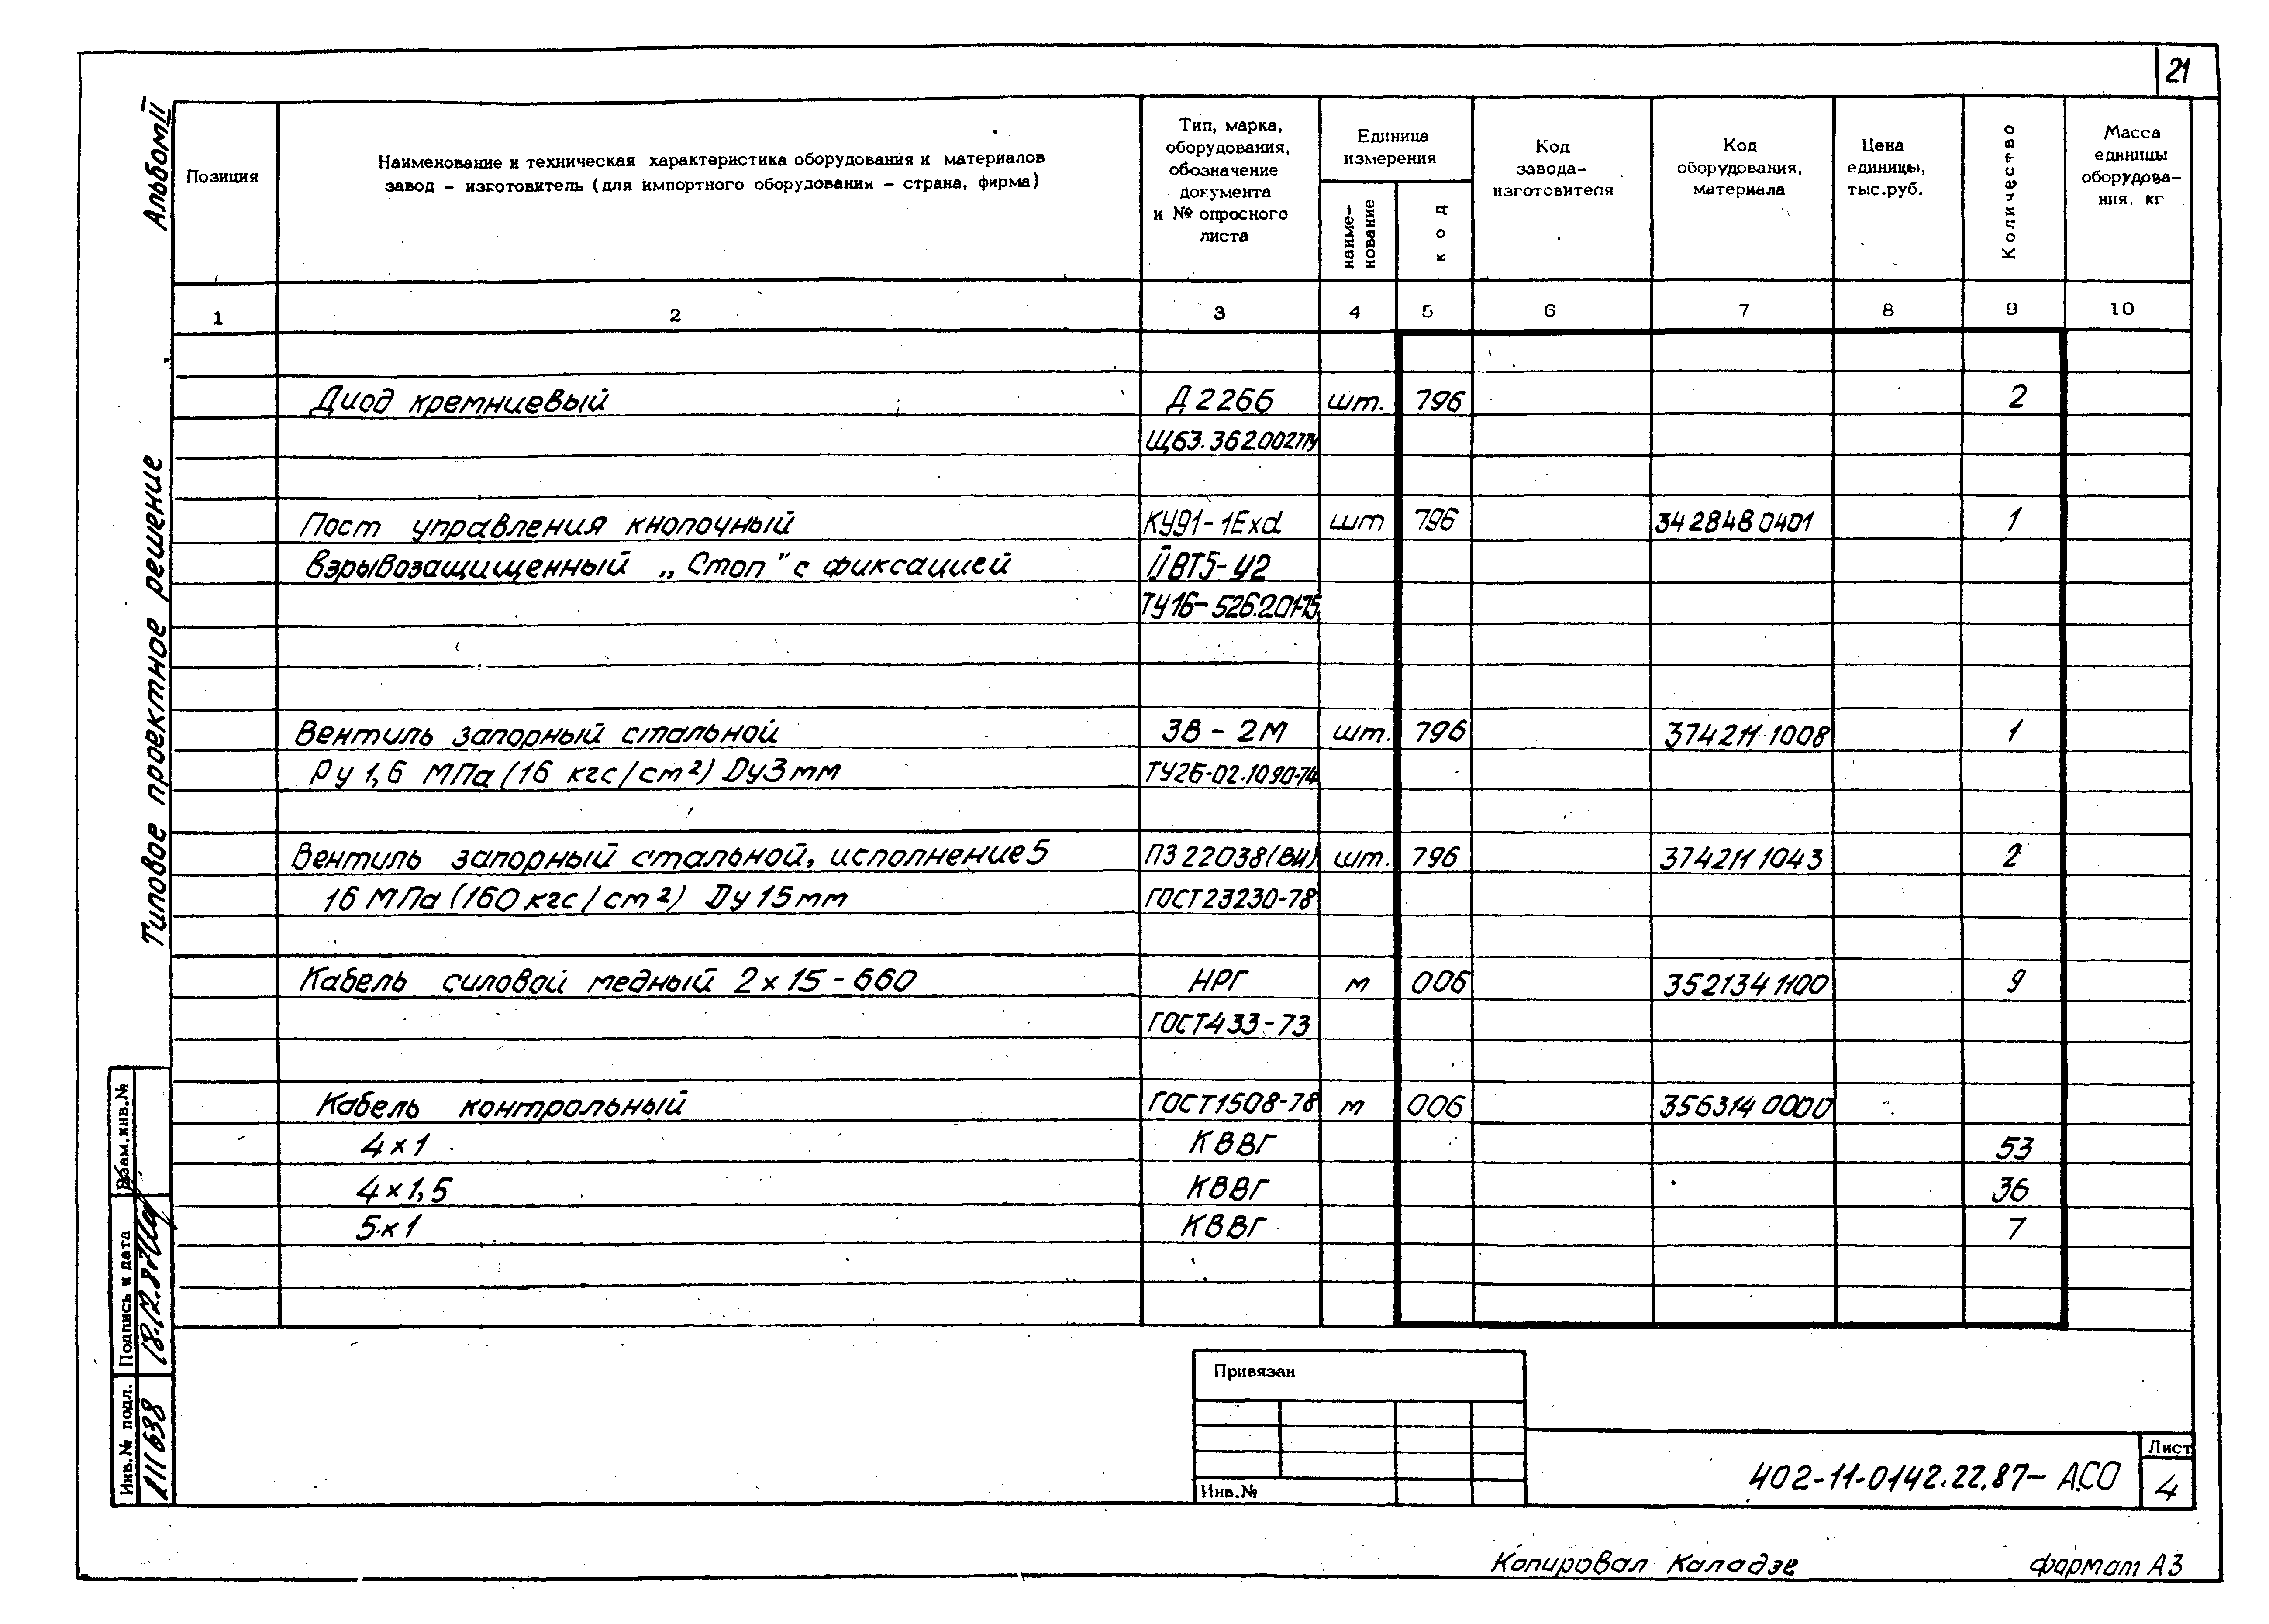 21
Альбом II
Типовое проектное решение
Позиция
Наименование и техническая характеристика оборудования и материалов
завод – изготовитель (для импортного оборудования – страна, фирма)
Тип, марка,
оборудования,
обозначение
документа
и № опросного
листа
Единица
измерения
наиме-
нование
код
Код
завода-
изготовителя
Код
оборудования,
материала
Цена
единицы,
тыс.руб.
Количество
Масса
единицы
оборудова-
ния, кг
1 2 3 4 5 6 7 8 9 10
Диод кремниевый Д226б шт. 796 2
Щб3.362.002ТУ
Пост управления кнопочный КУ91-1Exd шт 796 3428480401 1
взрывозащищенный „Стоп" с фиксацией ПВТ5-У2
ТУ16-526.201-75
Вентиль запорный стальной ЗВ-2М шт. 796 374211 1008 1
Ру 1,6 МПа (16 кгс/см²) Ду3мм ТУ26-02.1090-74
Вентиль запорный стальной, исполнение 5 ПЗ 22038(ВИ) шт. 796 374211 1043 2
16 МПа (160 кгс/см²) Ду 15мм ГОСТ23230-78
Кабель силовой медный 2х15-660 НРГ м 006 352134 1100 9
ГОСТ433-73
Кабель контрольный ГОСТ1508-78 м 006 356314 0000
4х1 КВВГ 53
4х1,5 КВВГ 36
5х1 КВВГ 7
Взам.инв.№
Подпись и дата
18.12.87
Инв.№ подл.
111638
Привязан
Инв.№
402-11-0142.22.87-АСО
Лист
4
Копировал Каладзе
формат А3